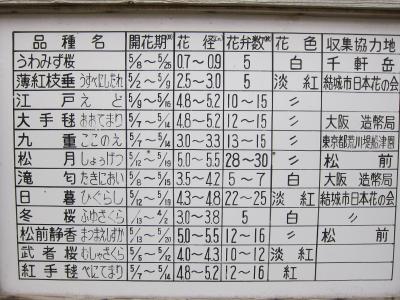 品種名 開花期(※) 花径cm 花弁数(※) 花色 収集協力地
うわみず桜 5/8〜5/25 0.7〜0.9 5 白 千軒岳
薄紅枝垂 うすべにしだれ 5/2〜5/9 2.5〜3.0 5 淡紅 結城市日本花の会
江戸 えど 5/6〜5/15 4.8〜5.2 10〜15 〃
大手毬 おおてまり 5/7〜5/14 4.8〜5.2 12〜15 〃 大阪造幣局
九重 ここのえ 5/7〜5/14 2.5〜3.3 13〜15 〃 東京都荒川堤船津園
松月 しょうげつ 5/19 5.0〜5.5 28〜30 〃 松前
滝匂 たきにおい 5/8〜5/15 3.5〜4.2 5〜7 白 大阪造幣局
日暮 ひぐらし 5/10〜5/19 4.3〜4.8 22〜25 淡紅 結城市日本花の会
冬桜 ふゆざくら 3.0〜3.8 5 白 〃
松前静香 まつまえしずか 5/13〜5/20 5.0〜5.5 12〜16 〃 松前
武者桜 むしゃざくら 5/6〜5/12 4.0〜4.3 10〜12 淡紅
紅手毬 べにてまり 5/7〜5/14 4.8〜5.2 12〜16 紅